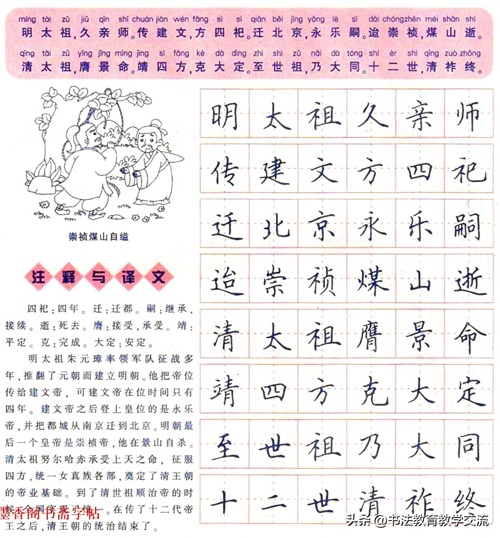 míng tài zǔ jiǔ qīn shī chuán jiàn wén fāng sì sì qiān běi jīng yǒng lè sì dài chóngzhēn méi shān shì
明太祖,久亲师。传建文,方四祀。迁北京,永乐嗣。迨崇祯,煤山逝。
qīng tài zǔ yīng jǐng mìng jìng sì fāng kè dà dìng zhì shì zǔ nǎi dà tóng shí èr shì qīng zuò zhōng
清太祖,膺景命。靖四方,克大定。至世祖,乃大同。十二世,清祚终。
崇祯煤山自缢
注释与译文
四祀:四年。迁:迁都。嗣:继承,
接续。逝:死去。膺:接受,承受。靖:
平定。克:完成。大定:安定。
明太祖朱元璋率领军队征战多
年,推翻了元朝而建立明朝。他把帝位
传给建文帝,可建文帝在位时间只有
四年。建文帝之后登上皇位的是永乐
帝,并把都城从南京迁到北京。明朝最
后一个皇帝是崇祯帝,他在景山自杀。
清太祖努尔哈赤承受上天之命,征服
四方,统一女真族各部,奠定了清王朝
的帝业基础。到了清世祖顺治帝的时
在传了十二代帝
王之后,清王朝的统治结束了。
墨香阁书斋字帖
明太祖久亲师
传建文方四祀
迁北京永乐嗣
迨崇祯煤山逝
清太祖膺景命
靖四方克大定
至世祖乃大同
十二世清祚终
头条@书法教育教学交流